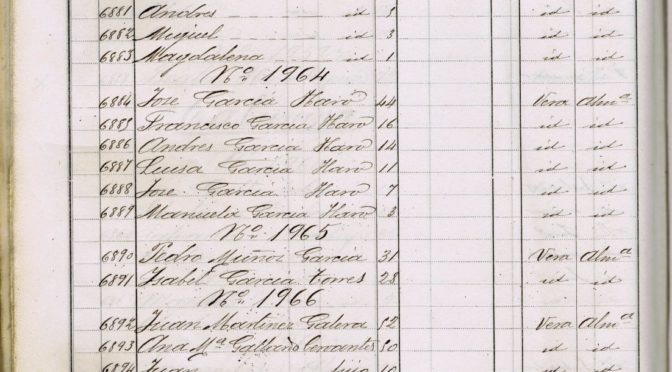 6881 Andres id 5 id id
6882 Miguel id 3 id id
6883 Magdalena id 1 id id
Nº 1964
6884 Jose Garcia Haro 44 Vera Almª
6885 Francisco Garcia Haro 16 id id
6886 Andres Garcia Haro 14 id id
6887 Luisa Garcia Haro 11 id id
6888 Jose Garcia Haro 7 id id
6889 Manuela Garcia Haro 3 id id
Nº 1965
6890 Pedro Muñoz Garcia 31 Vera Almª
6891 Isabel Garcia Torres 28 id id
Nº 1966
6892 Juan Martinez Galera 52 Vera Almª
6893 Ana Mª Cervantes 50 id id
6894 Juan hijo 10 id id